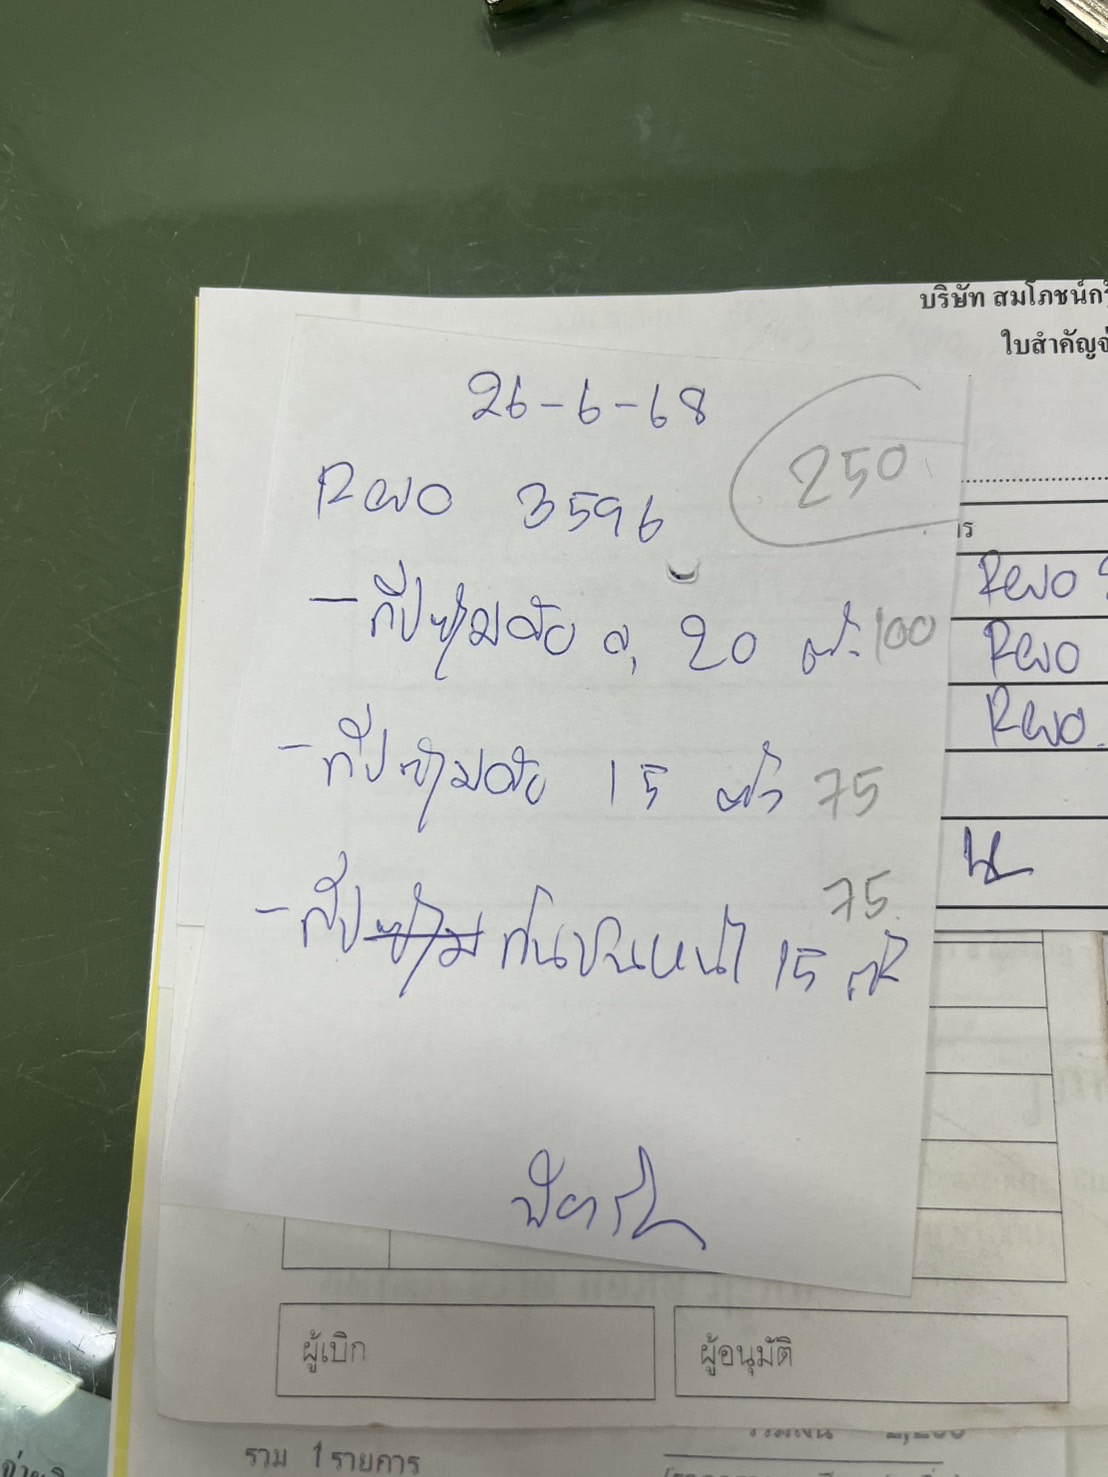 บริษัท สมโภชน์กร
ใบสำคัญจ่
26-6-68
250
Revo 3596
- กิ๊ปซุ้มล้อ 20 ตัว 100
- กิ๊ปซุ้มล้อ 15 ตัว 75
- กิ๊ป กันชนหน้า 15 ตัว 75
Revo
Revo
Revo
ผู้เบิก
ผู้อนุมัติ
รวม 1 รายการ